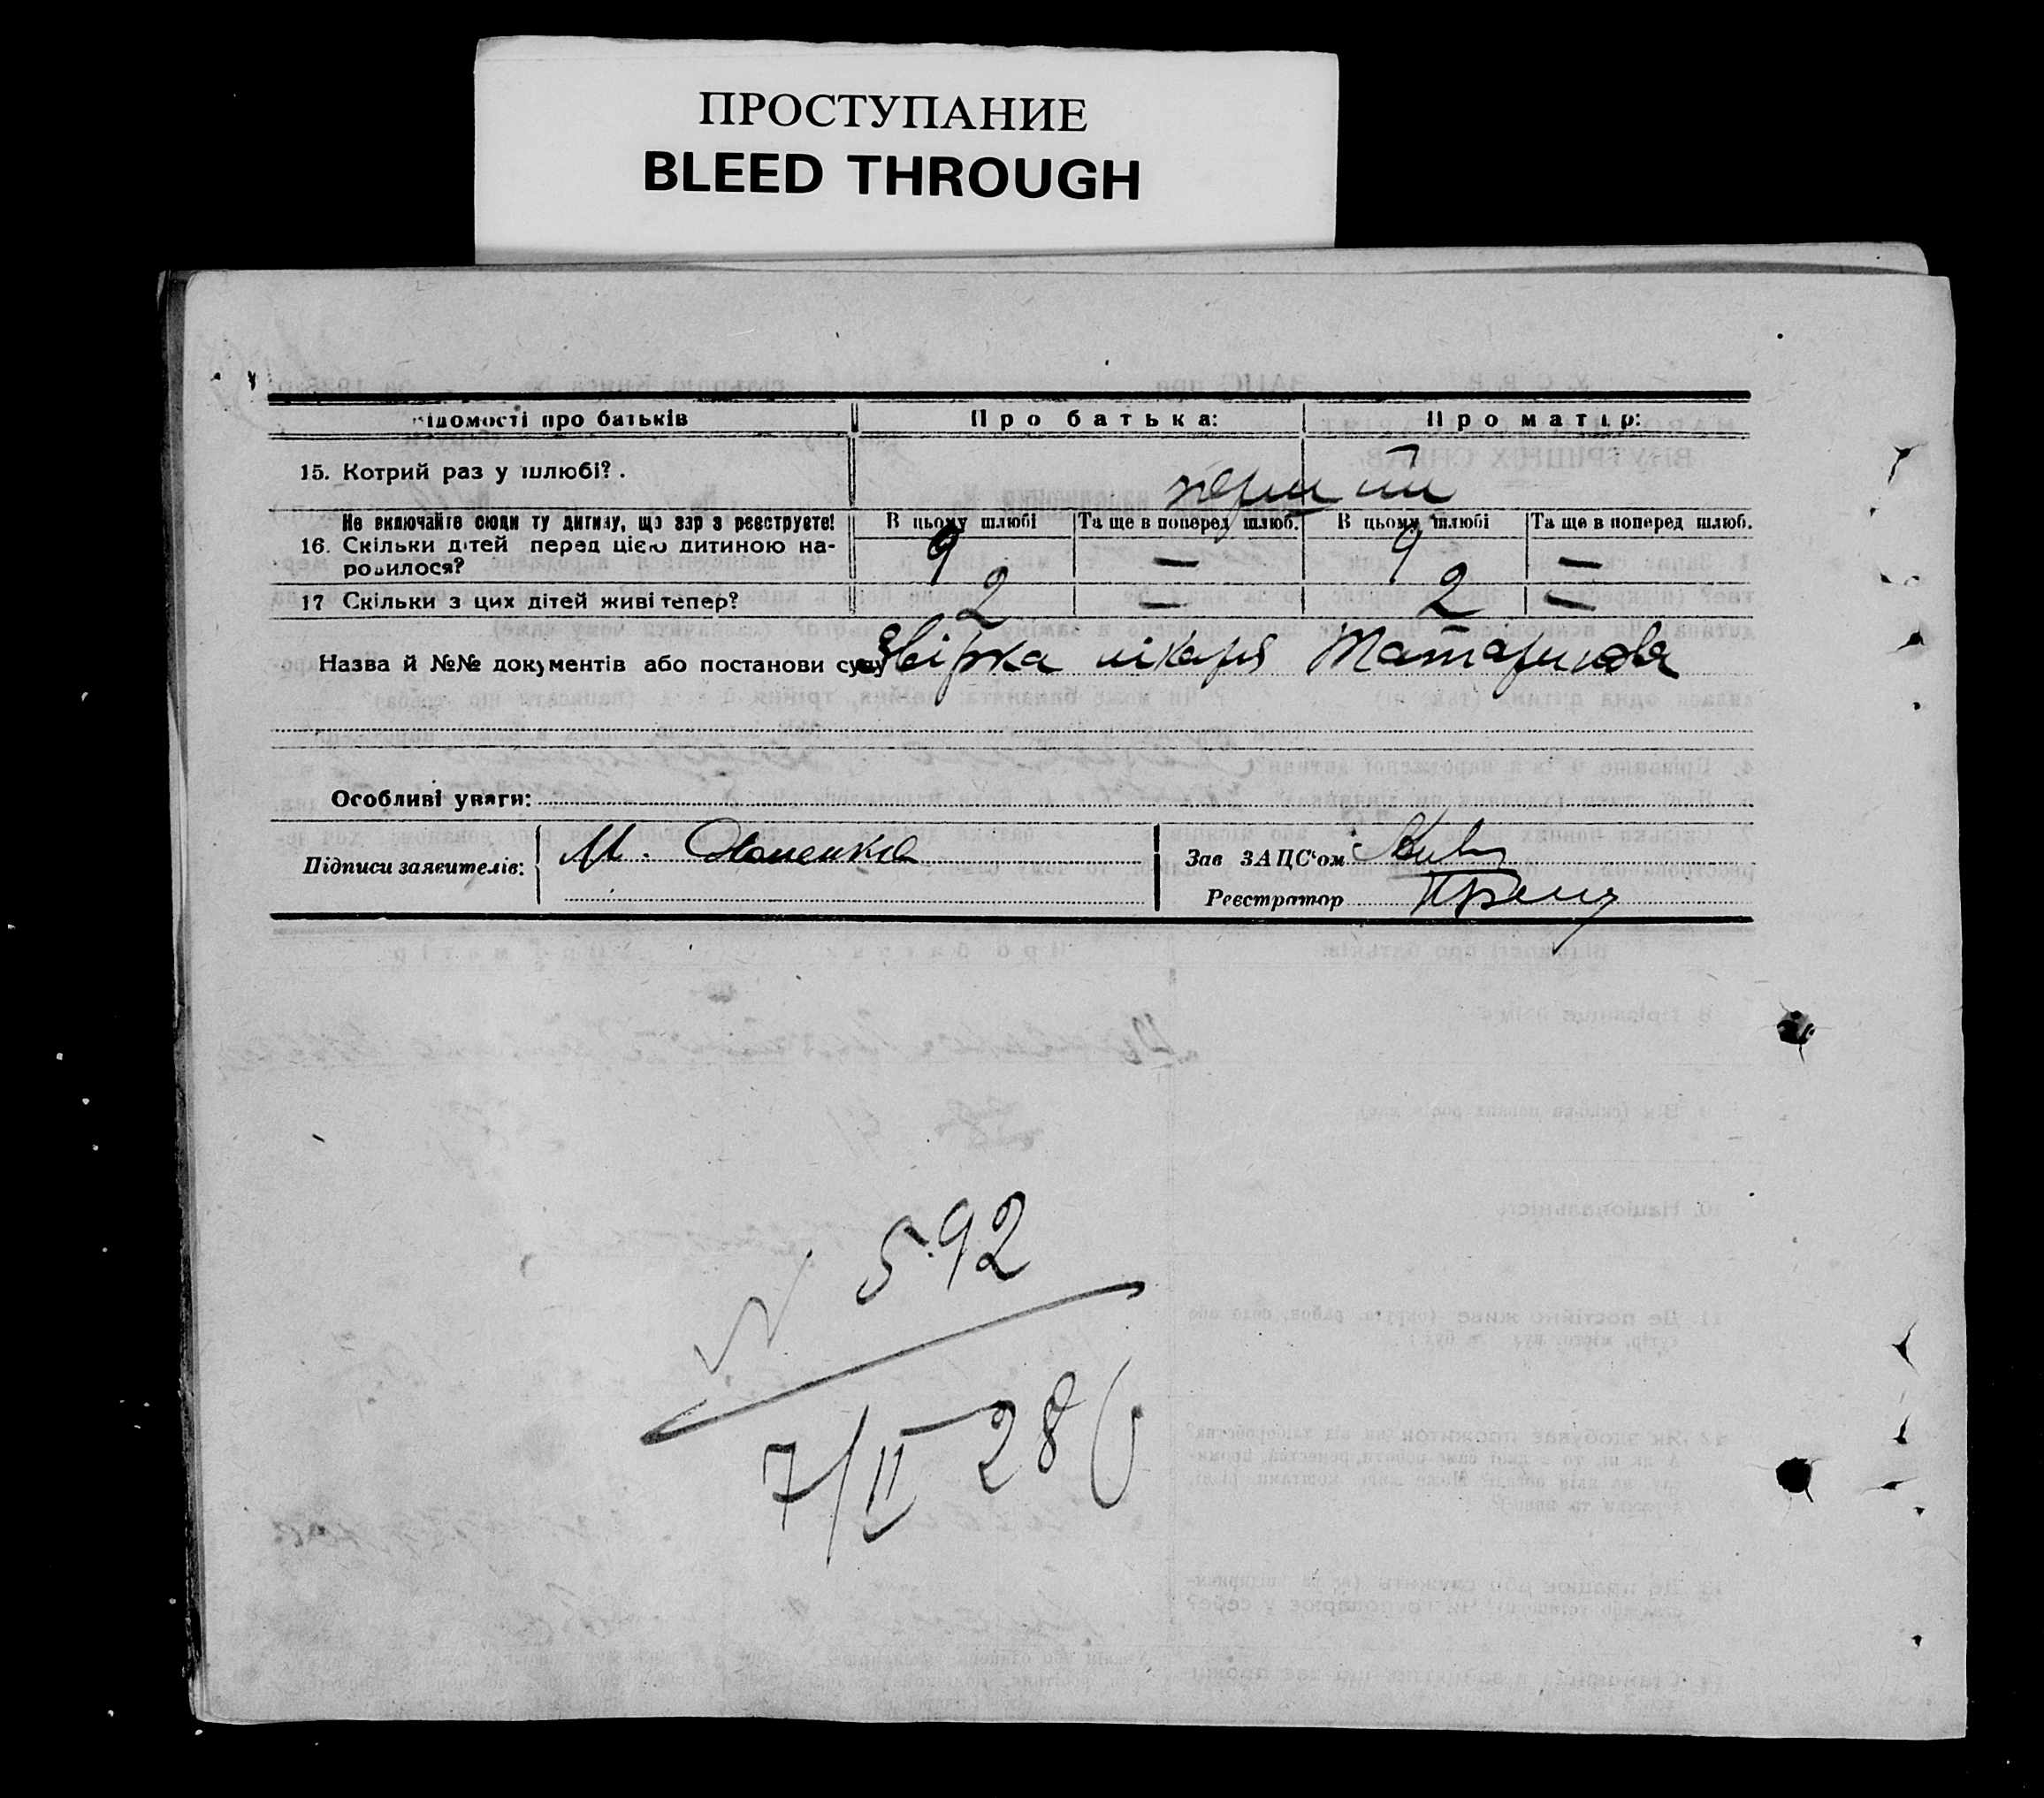 ПРОСТУПАНИЕ
BLEED THROUGH
ідомості про батьків Про батька: Про матір:
15. Котрий раз у шлюбі? . перший
Не включайте сюди ту дитину, що зар з реєструєте! В цьому шлюбі Та ще в поперед шлюб. В цьому шлюбі Та ще в поперед шлюб.
16. Скільки дітей перед цією дитиною на- 9 — 9 —
родилося?
17 Скільки з цих дітей живі тепер? 2 — 2 —
Назва й №№ документів або постанови суду лікаря
Особливі уваги:
Підписи заявителів: М. Зав ЗАЦС'ом
Реєстратор
N 592
7/II 28